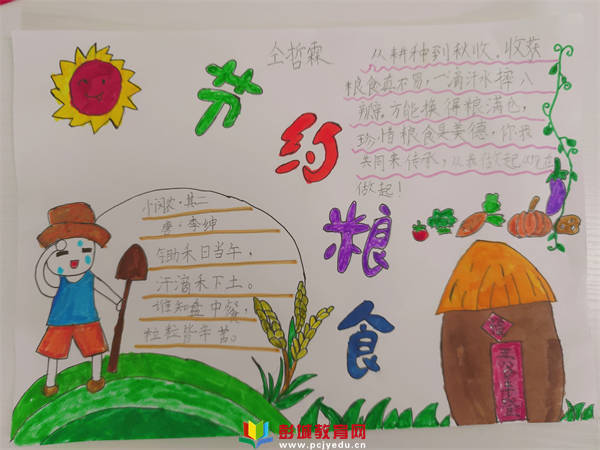 仝哲霖
节约粮食
从耕种到秋收,收获
粮食真不易,一滴汗水摔八
瓣,方能换得粮满仓,
珍惜粮食是美德,你我
共同来传承,从我做起从现在
做起!
小悯农·其二
唐·李绅
锄禾日当午,
汗滴禾下土。
谁知盘中餐,
粒粒皆辛苦。
五谷丰登
彭城教育网
www.pcjyedu.cn